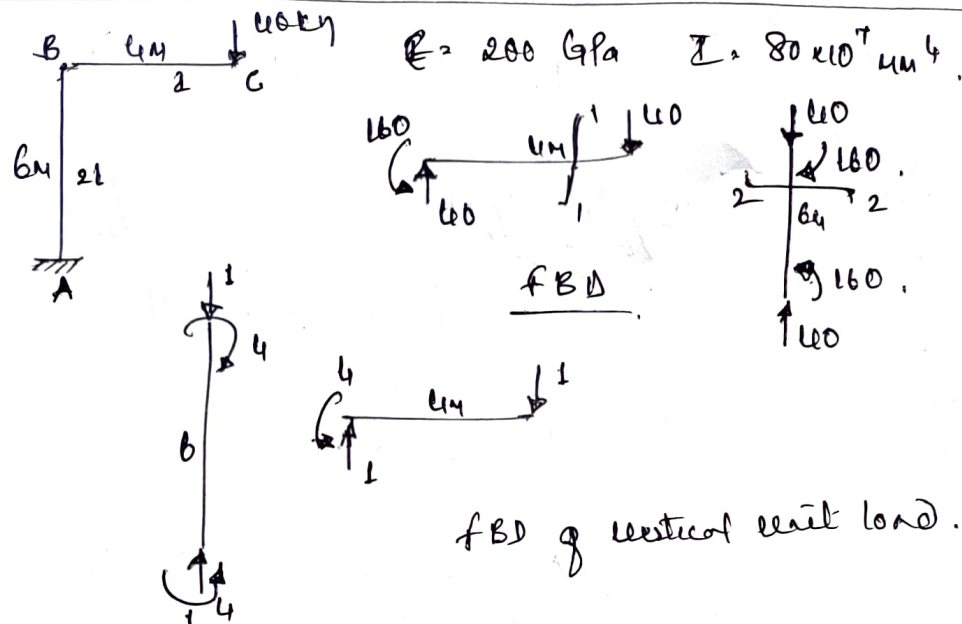 40kN
B 4M C
I
6M 2I
A
E = 200 GPa I = 80x10⁷ mm⁴.
160 4M 1 40
40 1
40
160.
2 2
6M
160.
40
FBD.
1
4
6
1 4
4 4M 1
1
FBD of vertical unit load.